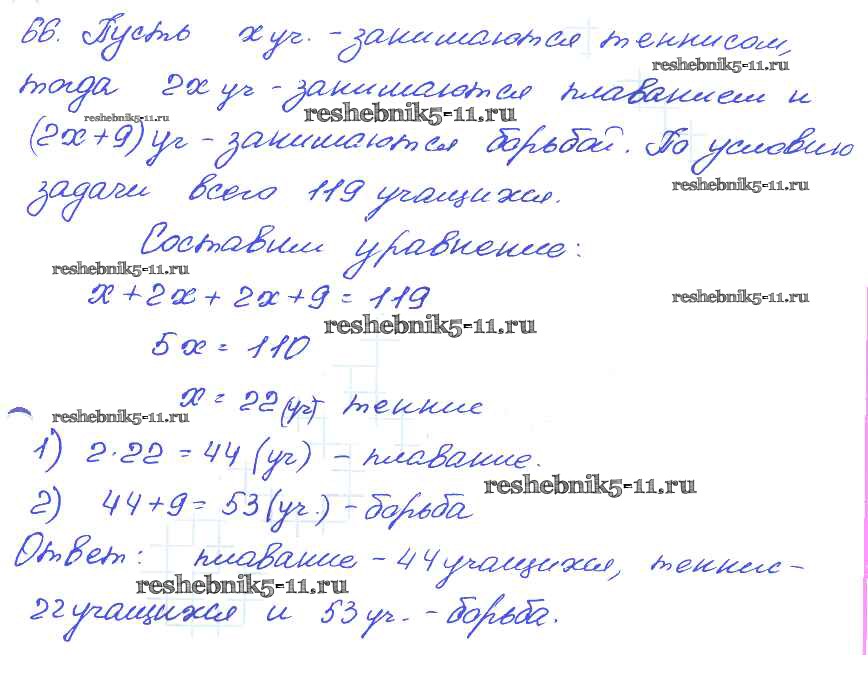 66. Пусть x уч. - занимаются теннисом,
reshebnik5-11.ru
тогда 2x уч - занимаются плаванием и
reshebnik5-11.ru reshebnik5-11.ru
(2x+9) уч - занимаются борьбой. По условию
reshebnik5-11.ru
задачи всего 119 учащихся.
Составим уравнение:
reshebnik5-11.ru
x + 2x + 2x + 9 = 119
reshebnik5-11.ru
reshebnik5-11.ru
5x = 110
x = 22 (уч) теннис
reshebnik5-11.ru
1) 2·22 = 44 (уч) - плавание.
reshebnik5-11.ru
2) 44 + 9 = 53 (уч.) - борьба
Ответ: плавание - 44 учащихся, теннис -
reshebnik5-11.ru
22 учащихся и 53 уч. - борьба.